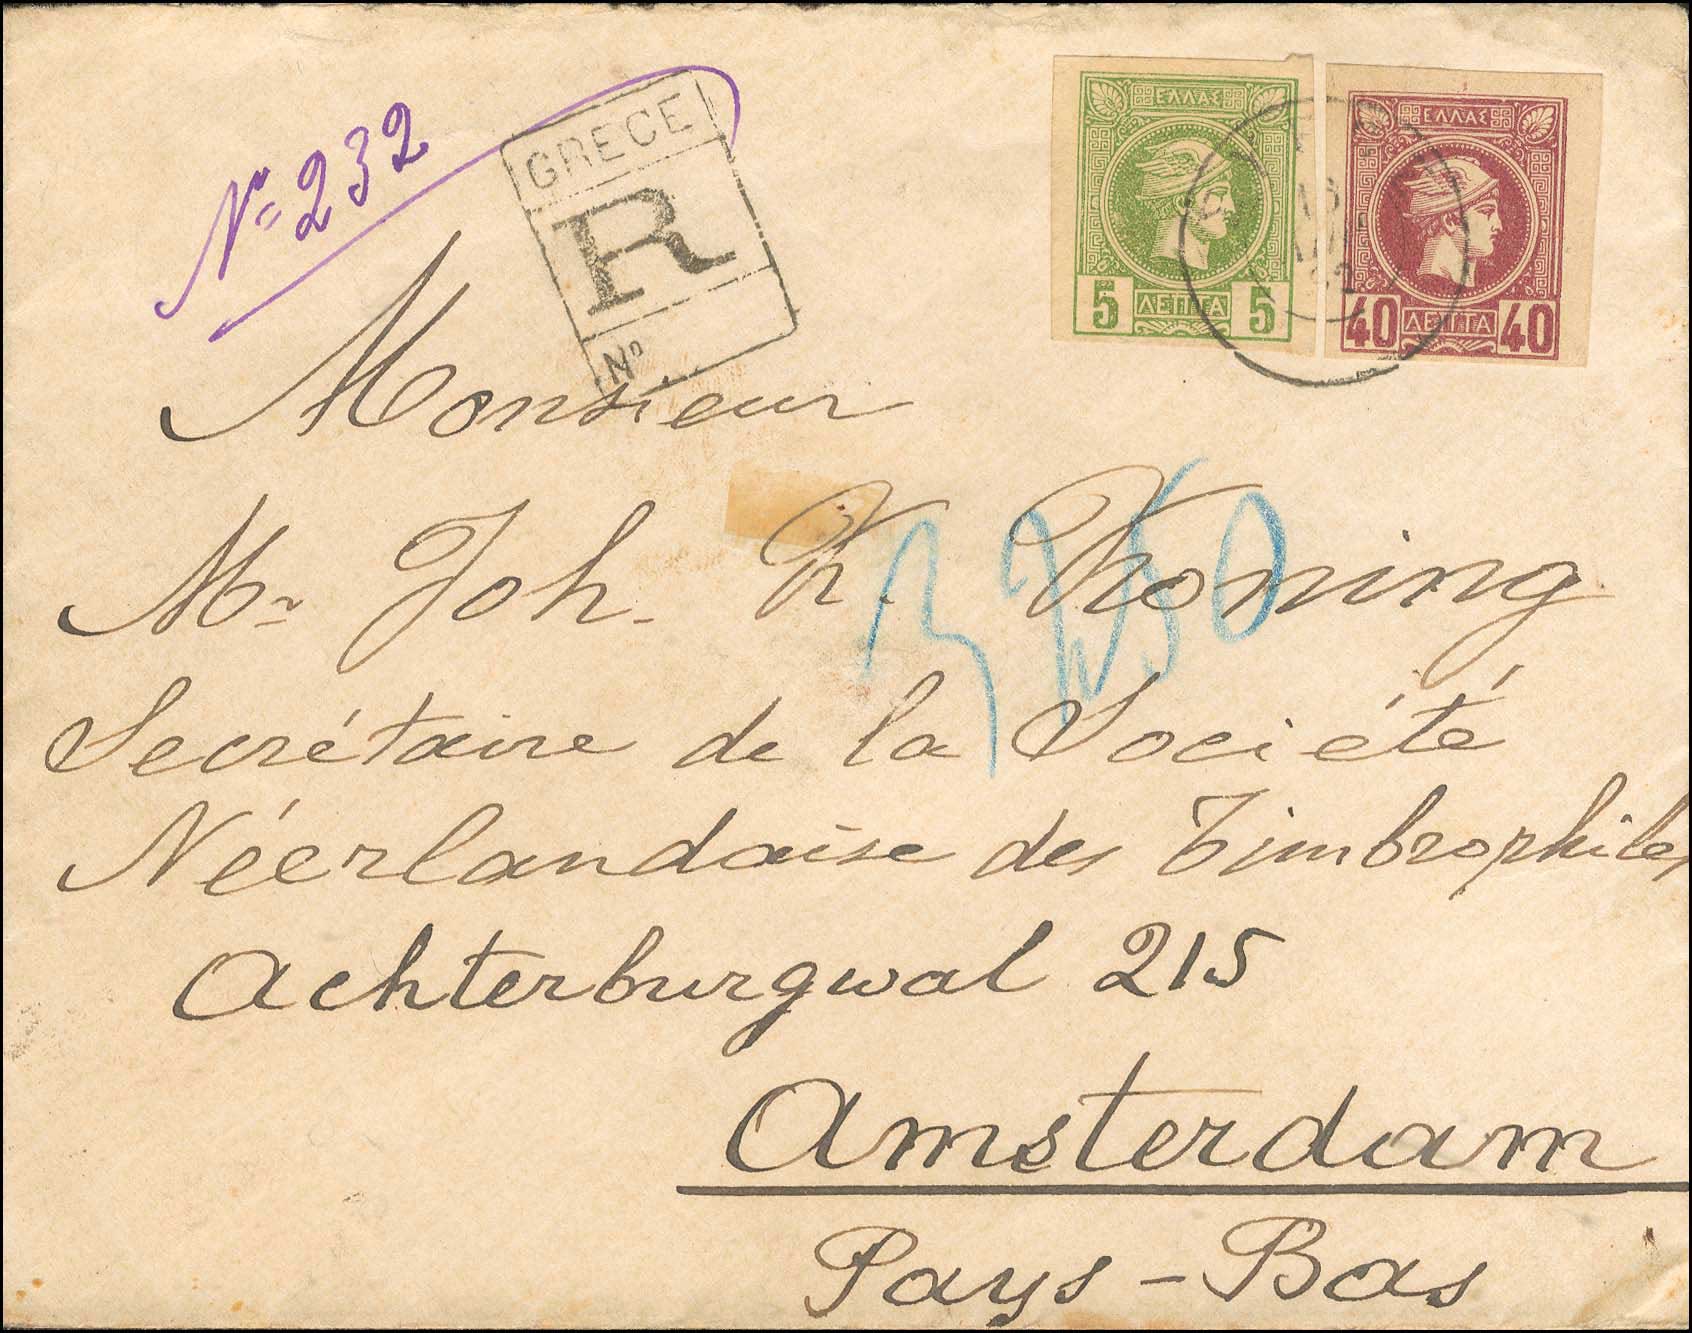 Nº 232
GRECE
R
Nº
ΕΛΛΑΣ
5 ΛΕΠΤΑ 5
ΕΛΛΑΣ
40 ΛΕΠΤΑ 40
Monsieur
Mr Joh. K. Koning
Secrétaire de la Société
Néerlandaise des Timbrophiles
Achterburgwal 215
Amsterdam
Pays-Bas